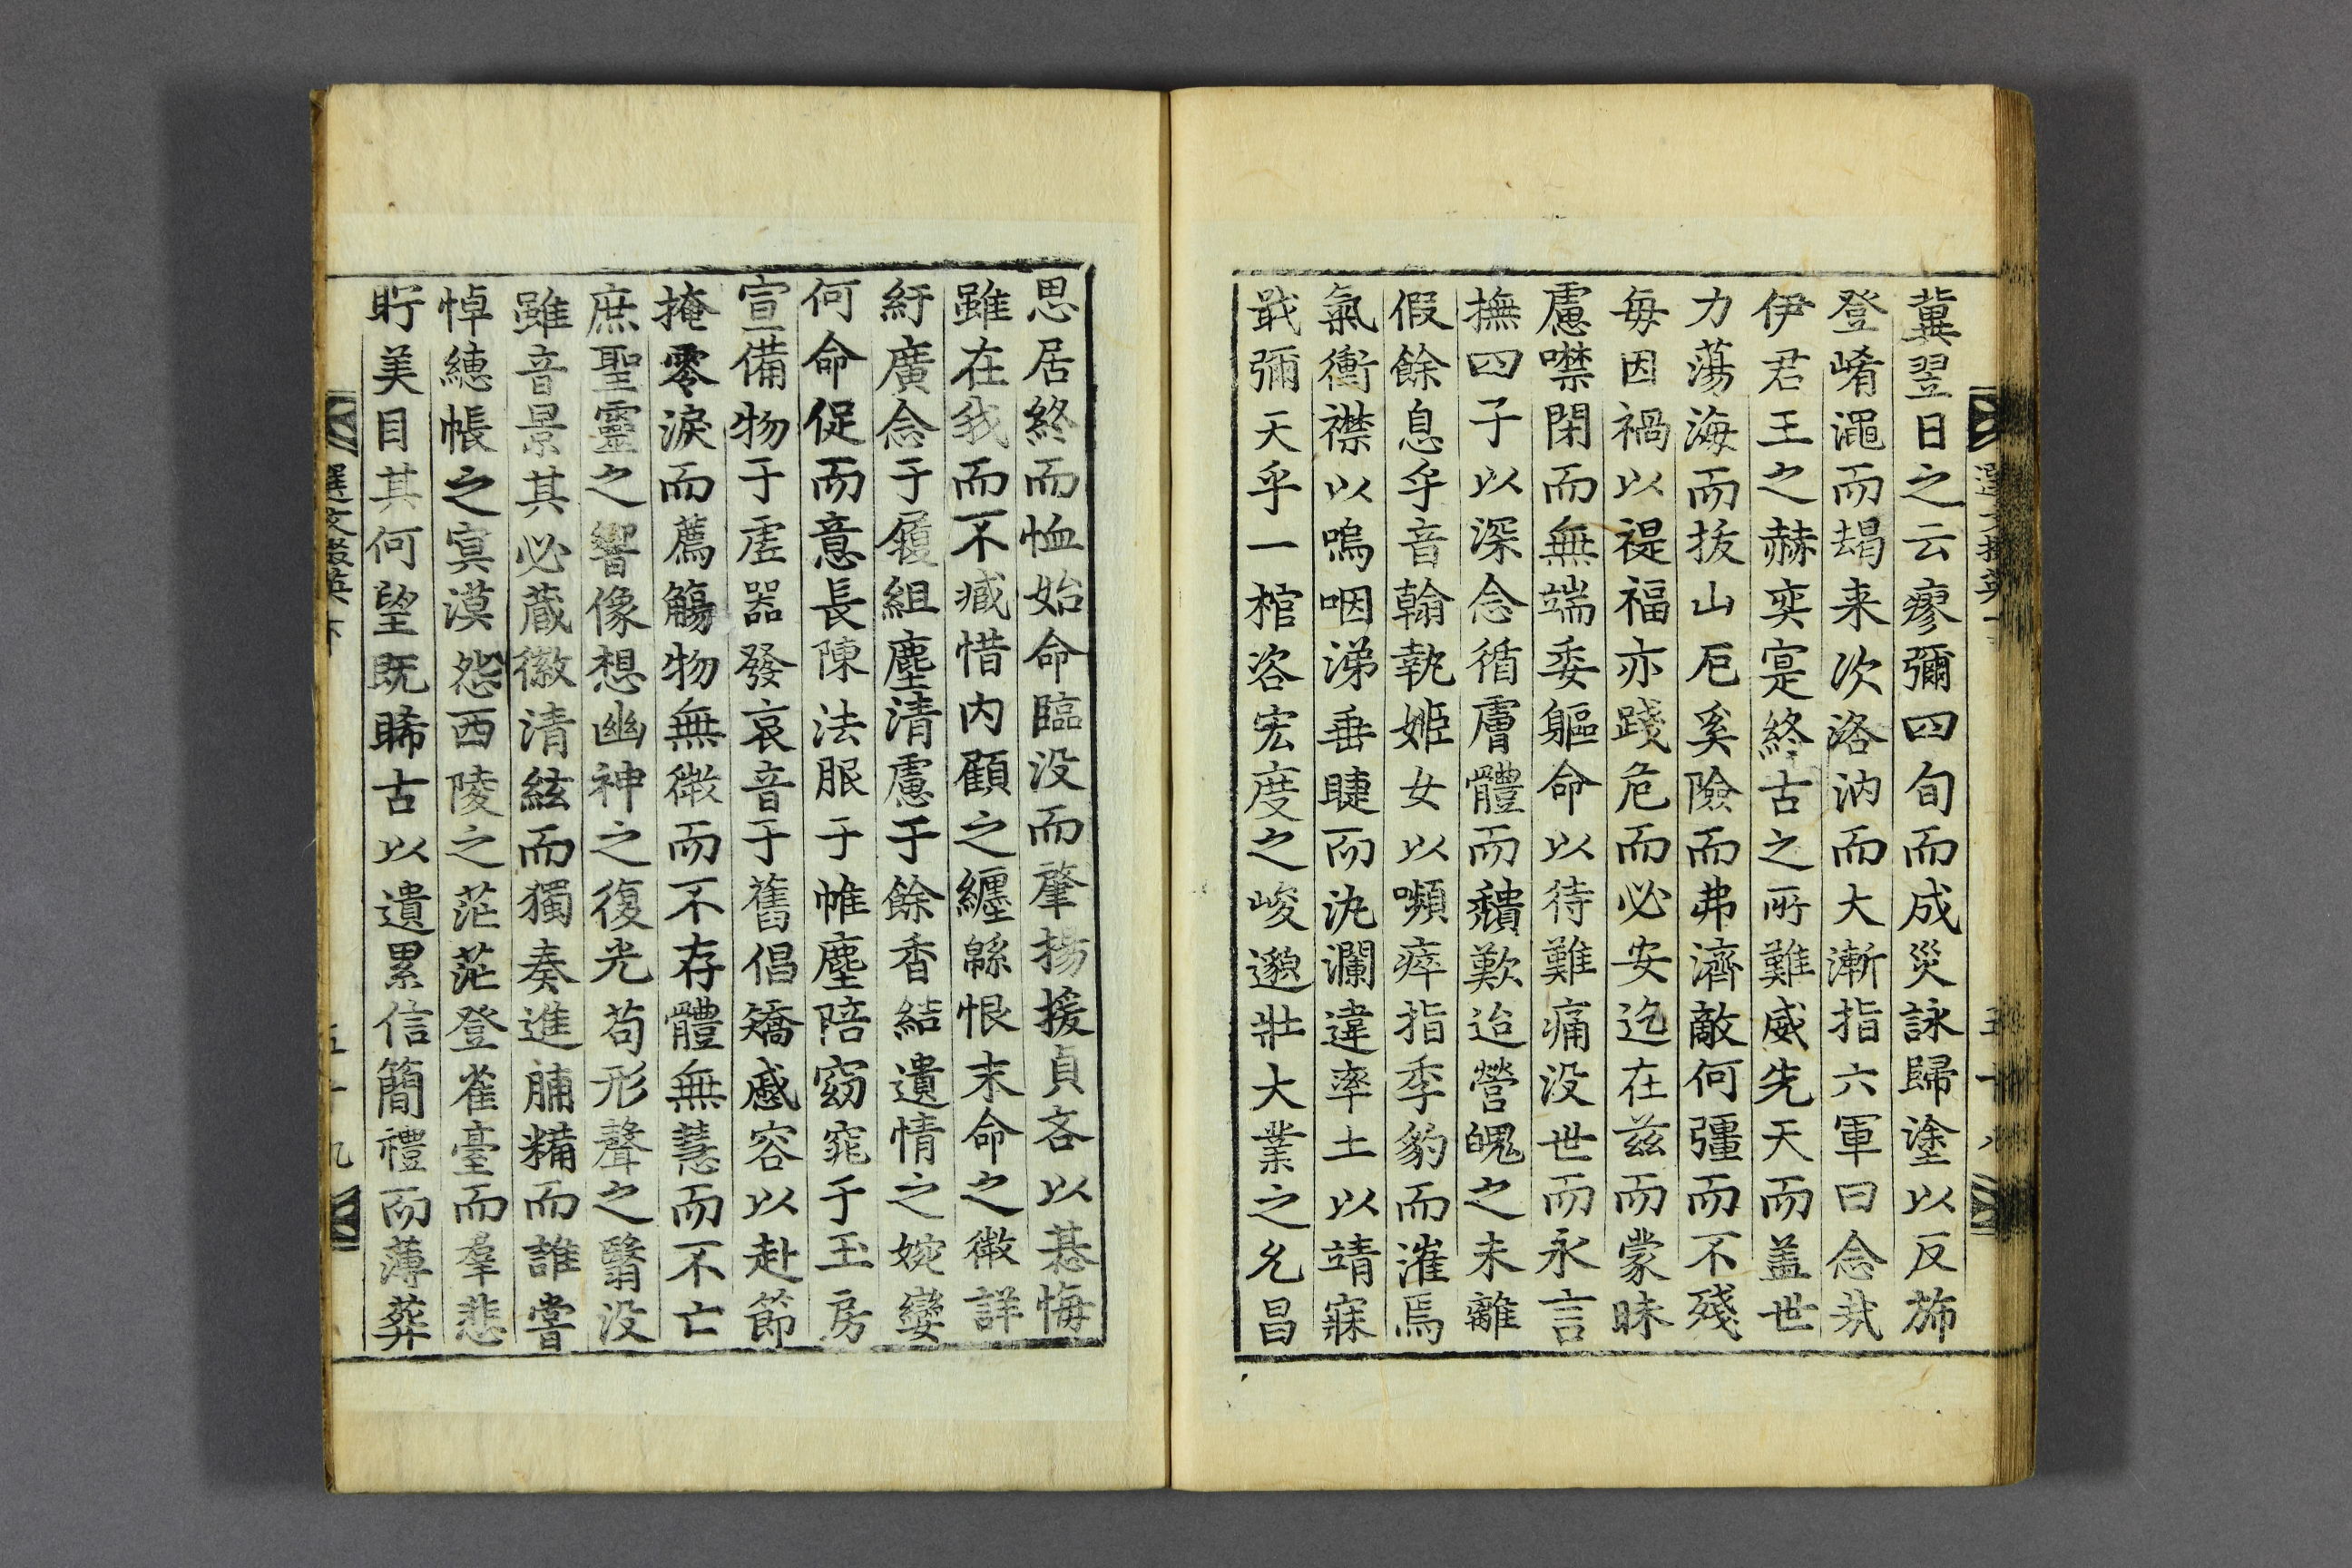 選文掇英下 五十八
冀翌日之云瘳彌四旬而成災詠歸塗以反旆
登崤澠而朅来次洛汭而大漸指六軍曰念㢤
伊君王之赫奕寔終古之所難威先天而盖世
力蕩海而拔山厄奚險而弗濟敵何彊而不殘
毎因禍以禔福亦踐危而必安迄在茲而蒙昧
慮噤閉而無端委軀命以待難痛没世而永言
撫四子以深念循膚體而頹歎迨營魄之未離
假餘息乎音翰執姬女以嚬瘁指季豹而漼焉
氣衝襟以嗚咽涕垂睫而汍瀾違率土以靖寐
戢彌天乎一棺咨宏度之峻邈壯大業之允昌
思居終而恤始命臨没而肇揚援貞吝以惎悔
雖在我而不臧惜内顧之纏緜恨末命之微詳
紆廣念于履組塵清慮于餘香結遺情之婉孌
何命促而意長陳法服于帷塵陪窈窕于玉房
宣備物于虗器發哀音于舊倡矯慼容以赴節
掩零淚而薦觴物無微而不存體無慧而不亡
庶聖靈之響像想幽神之復光苟形聲之翳没
雖音景其必藏徽清絃而獨奏進脯糒而誰嘗
悼繐帳之冥漠怨西陵之茫茫登雀臺而羣悲
眝美目其何望既睎古以遺累信簡禮而薄葬
選文掇英下 五十九